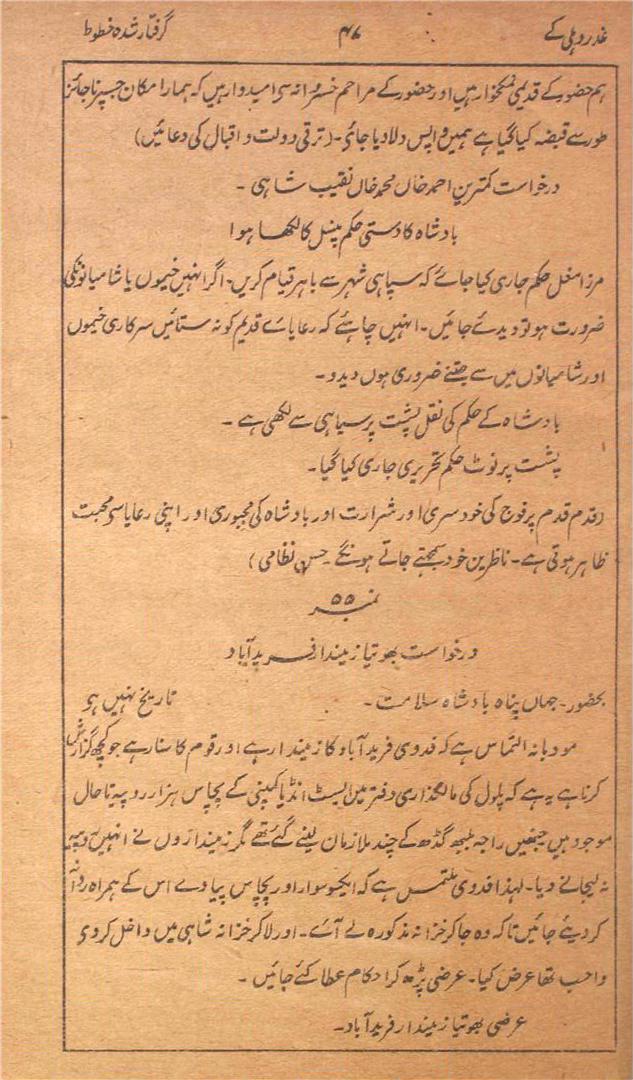 غدر دہلی کے ۴۷ گرفتار شدہ خطوط
ہم حضور کے قدیمی نمکخوار ہیں اور حضور کے مراحم خسروانہ سی امیدوار ہیں کہ ہمارا مکان جسپر ناجائز
طور سے قبضہ کیا گیا ہے ہمیں واپس دلا دیا جائی۔ (ترقی دولت و اقبال کی دعائیں)
درخواست کمترین احمد خاں محمد خاں نقیب شاہی۔
بادشاہ کا دستی حکم پنسل کا لکھا ہوا
مرزا مغل حکم جاری کیا جائے کہ سپاہی شہر سے باہر قیام کریں۔ اگر انہیں خیموں یا شامیانونکی
ضرورت ہو تو دیدئے جائیں۔ انہیں چاہئے کہ رعایاے قدیم کو نہ ستائیں سرکاری خیموں
اور شامیانوں میں سے جتنے ضروری ہوں دیدو۔
بادشاہ کے حکم کی نقل پشت پر سیاہی سے لکھی ہے۔
پشت پر نوٹ حکم تحریری جاری کیا گیا۔
(قدم قدم پر فوج کی خودسری اور شرارت اور بادشاہ کی مجبوری اور اپنی رعایا سی محبت
ظاہر ہوتی ہے۔ ناظرین خود سمجھتے جاتے ہونگے۔ حسن نظامی)
نمبر ۵۵
درخواست بھوتیا زمیندار فرید آباد
بحضور۔ جہاں پناہ بادشاہ سلامت۔ تاریخ نہیں ہی
مودبانہ التماس ہے کہ فدوی فرید آباد کا زمیندار ہے اور قوم کا سنار ہے جو کچھ گزارش
کرنا ہے یہ ہے کہ پلول کی مالگذاری دفتر میں ایسٹ انڈیا کمپنی کے پچاس ہزار روپیہ تا حال
موجود ہیں جنھیں راجہ بلبھ گڈھ کے چند ملازمان لینے گئے تھے مگر زمینداروں نے انہیں روپیہ
نہ لیجانے دیا۔ لہذا فدوی ملتمس ہے کہ ایکسو سوار اور پچاس پیادے اس کے ہمراہ روانہ
کر دیئے جائیں تاکہ وہ جا کر خزانہ مذکورہ لے آئے۔ اور لا کر خزانہ شاہی میں داخل کر دی
واجب تھا عرض کیا۔ عرضی پڑھ کر احکام عطا کئے جائیں۔
عرضی بھوتیا زمیندار فرید آباد۔